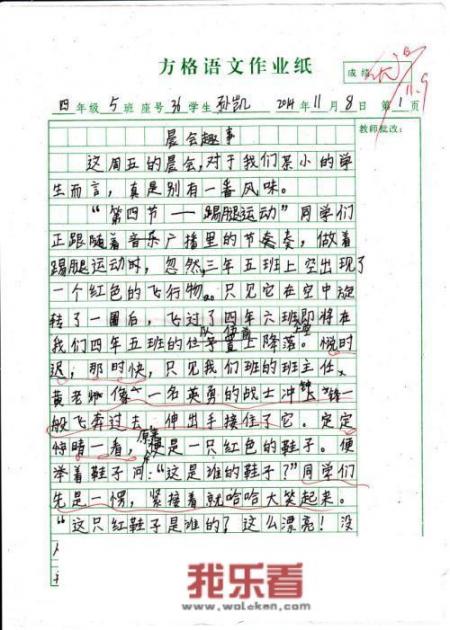 方格语文作业纸
成绩
11.9
四年级 5 班 座号 36 学生 孙凯 2014年 11月 8日 第 1 页
教师批改:
晨会趣事
这周五的晨会,对于我们某小的学
生而言,真是别有一番风味。
“第四节——踢腿运动”同学们
正跟随着音乐广播里的节奏奏,做着
踢腿运动时,忽然,三年五班上空出现了
一个红色的飞行物。只见它在空中旋
转了一圈后,飞过了四年六班即将在
我们四年五班的位置上降落。说时
迟,那时快,只见我们班的班主任
黄老师像一名英勇的战士冲锋
般飞奔过去,伸出手接住了它。定定
惊睛一看,原来是一只红色的鞋子。便
举着鞋子问:“这是谁的鞋子?”同学们
先是一愣,紧接着就哈哈大笑起来。
“这只红鞋子是谁的?这么漂亮!没
我乐看
www.woleken.com